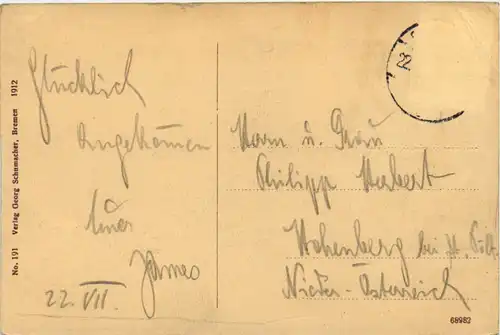 No. 191 Verlag Georg Schumacher, Bremen 1912
Glücklich
angekommen
Euer
James
22. VII.
22.
Herrn u. Frau
Philipp Herbert
Hohenberg bei St. Pölt.
Nieder-Österreich
68982